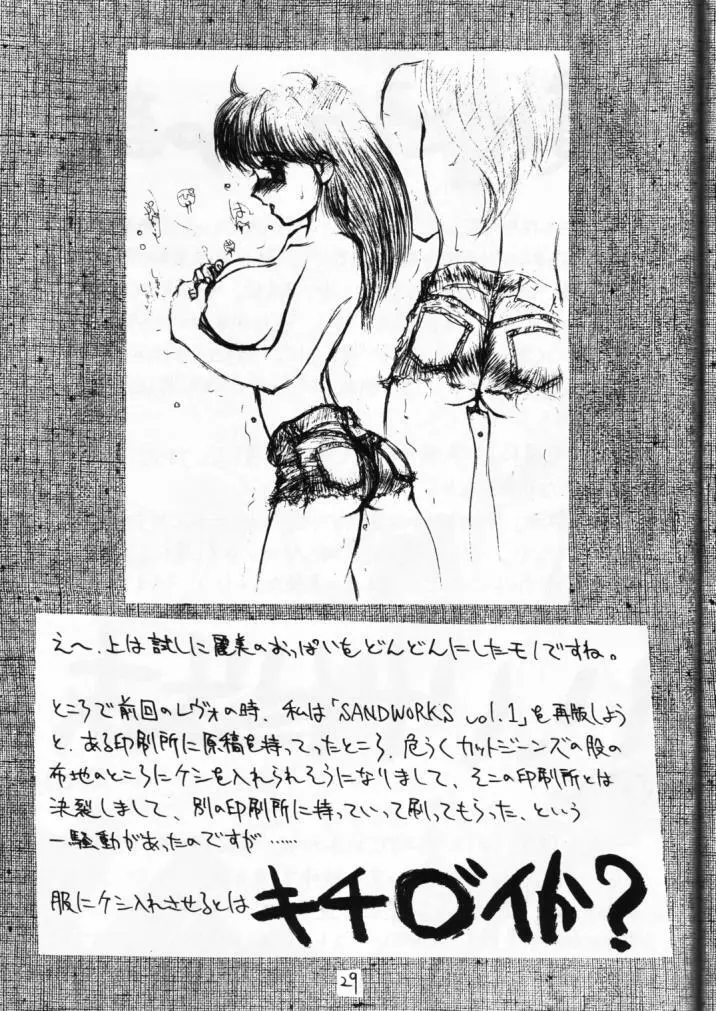 え〜、上は試しに麗美のおっぱいをどんどんにしたモノですね。
ところで前回のレヴォの時、私は「SANDWORKS vol.1」を再版しよう
と、ある印刷所に原稿を持ってったところ、危うくカットジーンズの股の
布地のところにケシを入れられそうになりまして、そこの印刷所とは
決裂しまして、別の印刷所に持っていって刷ってもらった、という
一騒動があったのですが……
服にケシ入れさせるとは キチ○゛イか?
29